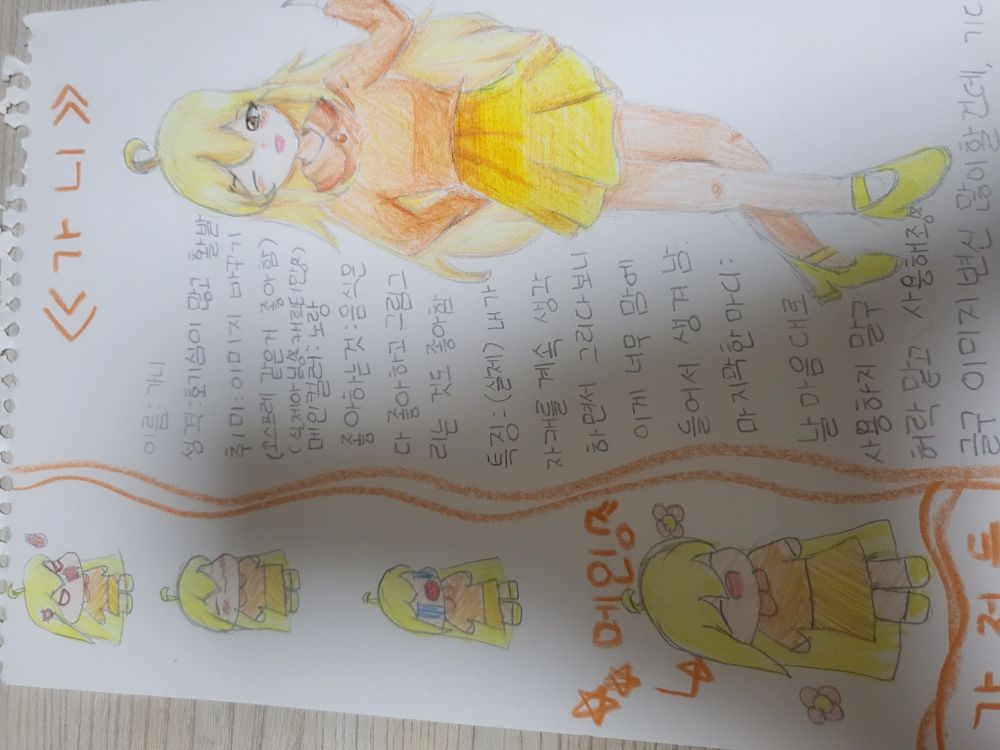 《가니》
이름: 가니
성격:호기심이 많고 활발
취미:이미지 바꾸기
(코스프레 같은거 좋아함)
메인컬러:노랑
좋아하는것:음식은
다 좋아하고 그림그
리는 것도 좋아함
특징:(실제) 내가
자캐를 계속 생각
하면서 그리다보니
이게 너무 맘에
들어서 생겨남.
마지막한마디:
날 마음대로
사용하지 말구
허락 맡고 사용해죵
글구 이미지변신 많이할건데, 기
메인